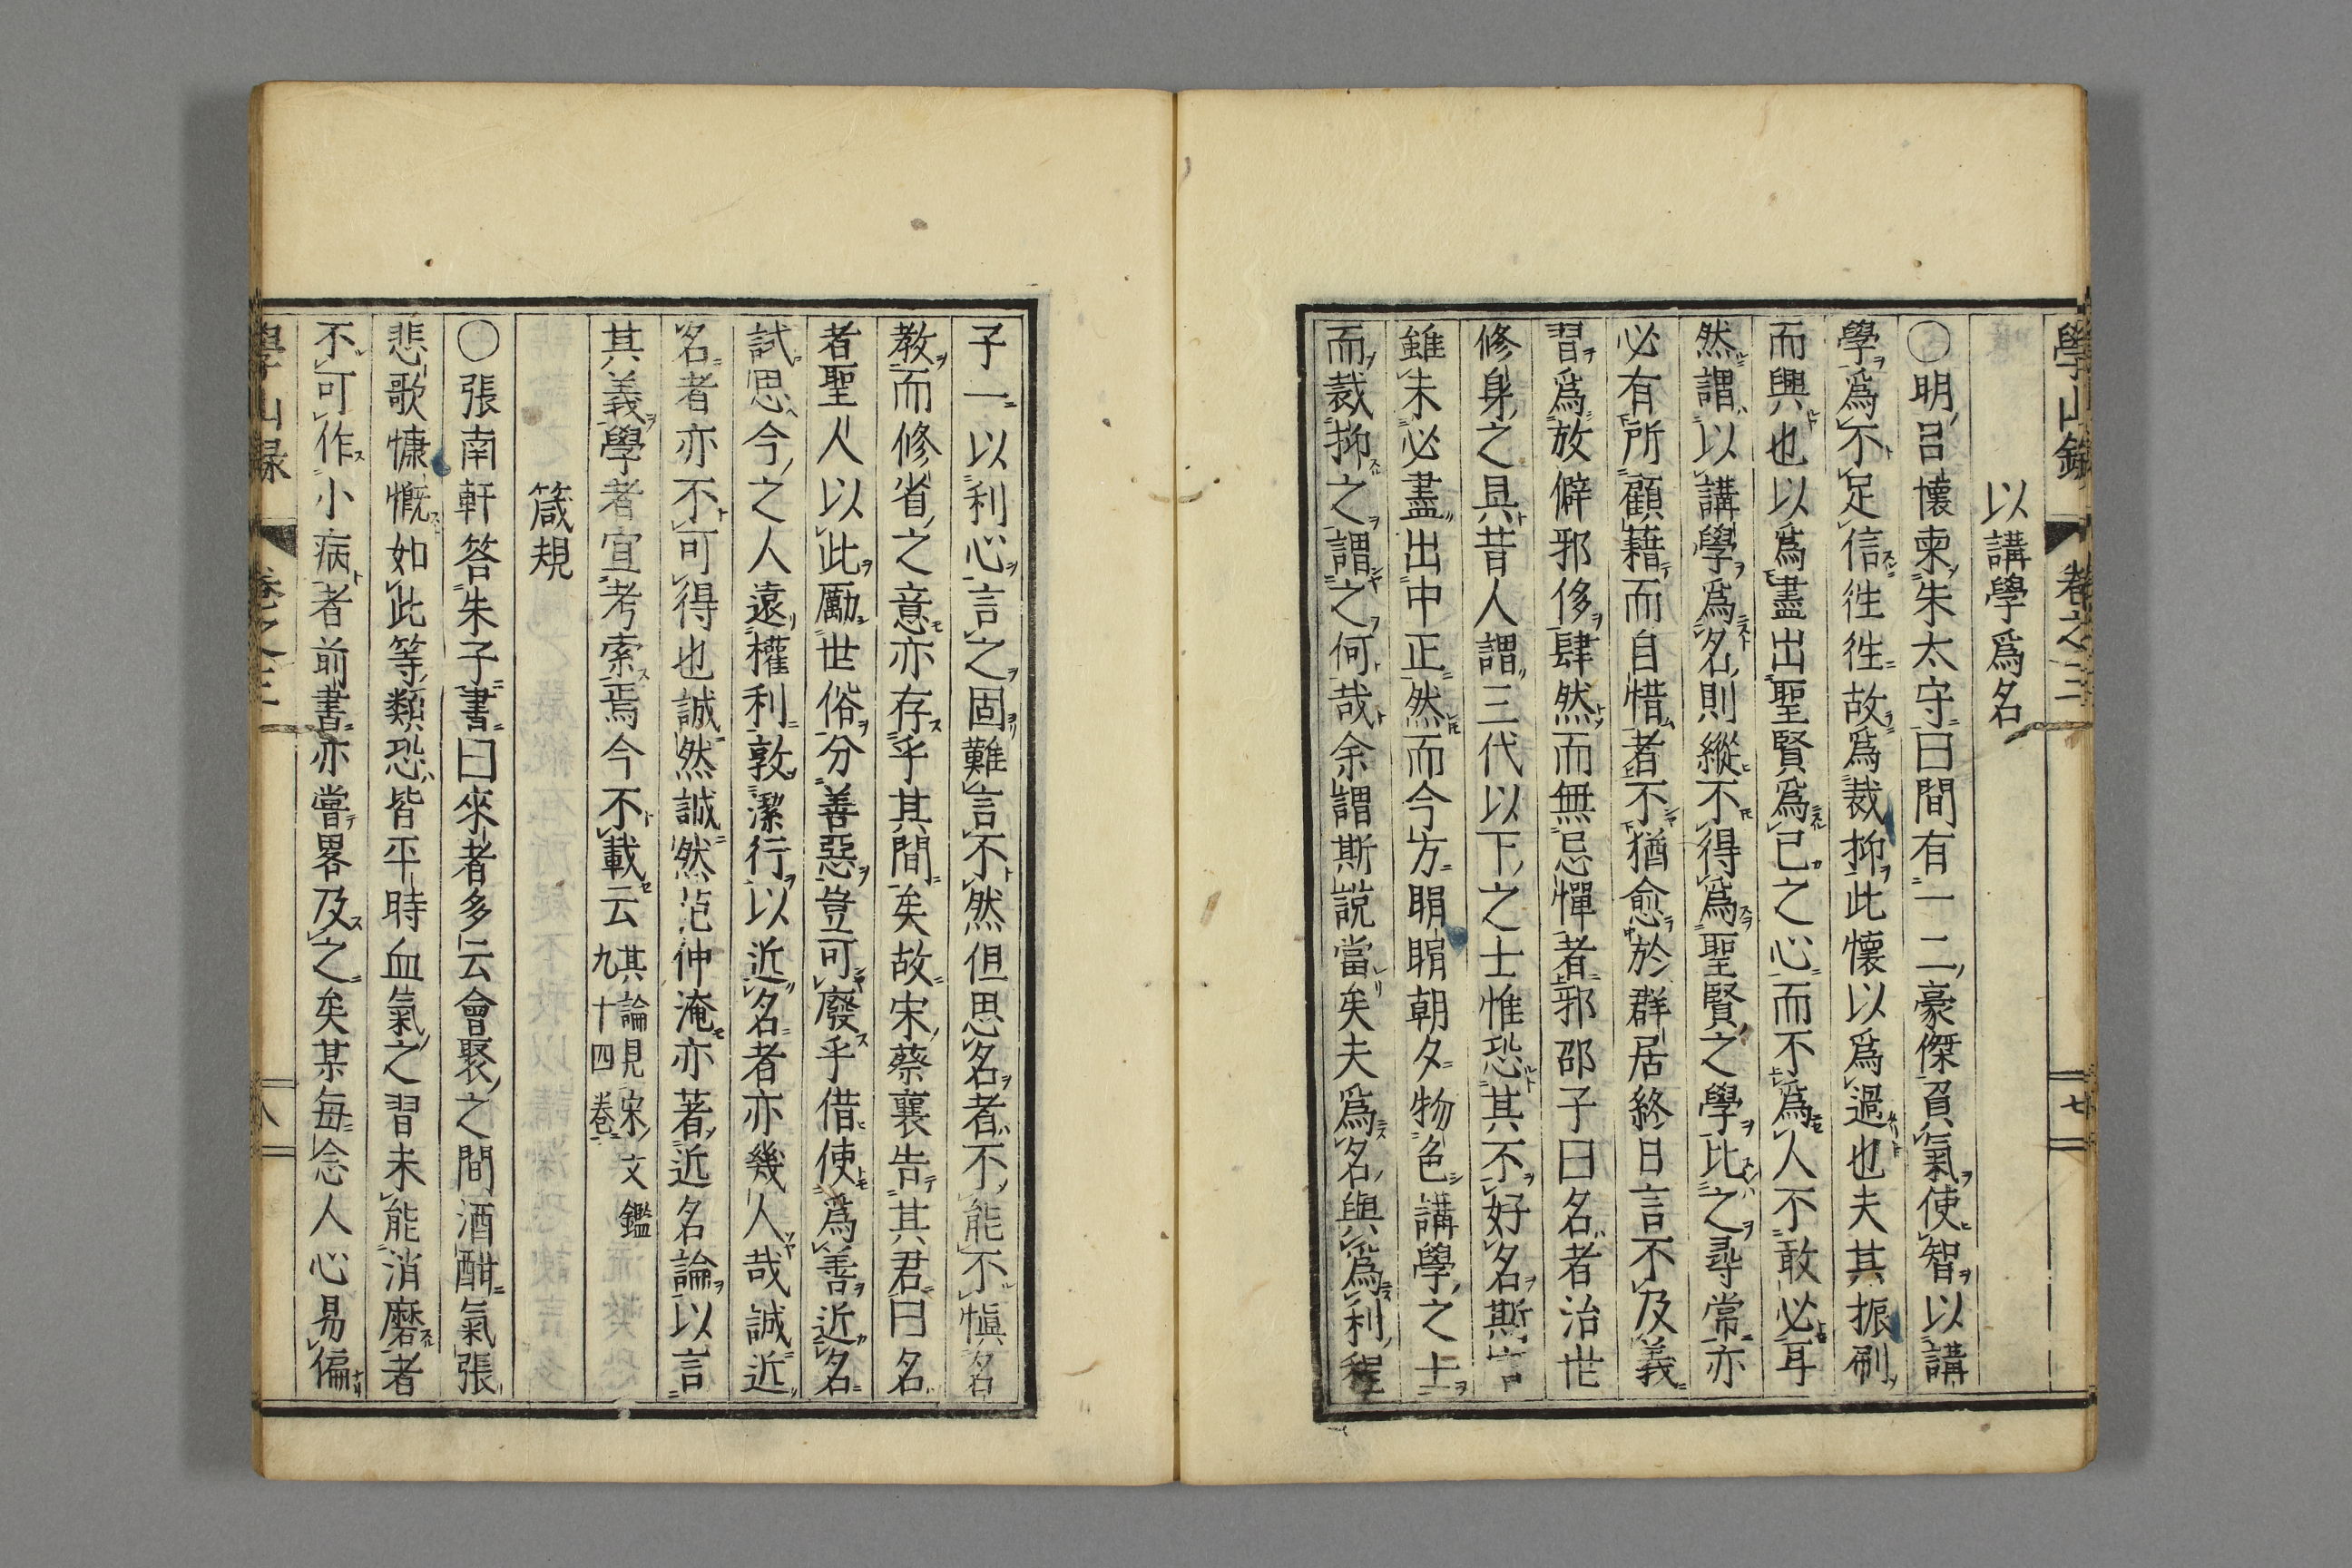 學山錄 卷之三 七
以講學爲名
〇明呂懷柬朱太守曰間有一二豪傑負氣使智以講
學爲不足信徃徃故爲裁抑此懷以爲過也夫其振刷
而興也以爲盡出聖賢爲己之心而不爲人不敢必耳
然謂以講學爲名則縱不得爲聖賢之學比之尋常亦
必有所顧藉而自惜者不猶愈於群居終日言不及義
習爲放僻邪侈肆然而無忌憚者邪邵子曰名者治世
修身之具昔人謂三代以下之士惟恐其不好名斯言
雖未必盡出中正然而今方睊睊朝夕物色講學之士
而裁抑之謂之何哉余謂斯説當矣夫爲名與爲利程
子一以利心言之固難言不然但思名者不能不愼名
教而修省之意亦存乎其間矣故宋蔡襄告其君曰名
者聖人以此勵世俗分善惡豈可廢乎借使爲善近名
試思今之人遠權利敦潔行以近名者亦幾人哉誠近
名者亦不可得也誠然誠然范仲淹亦著近名論以言
其義學者宜考索焉今不載云 其論見宋文鑑
九十四卷
箴規
〇張南軒答朱子書曰來者多云會聚之間酒酣氣張
悲歌慷慨如此等類恐皆平時血氣之習未能消磨者
不可作小病者前書亦嘗畧及之矣某每念人心易偏
學山錄 卷之三 八